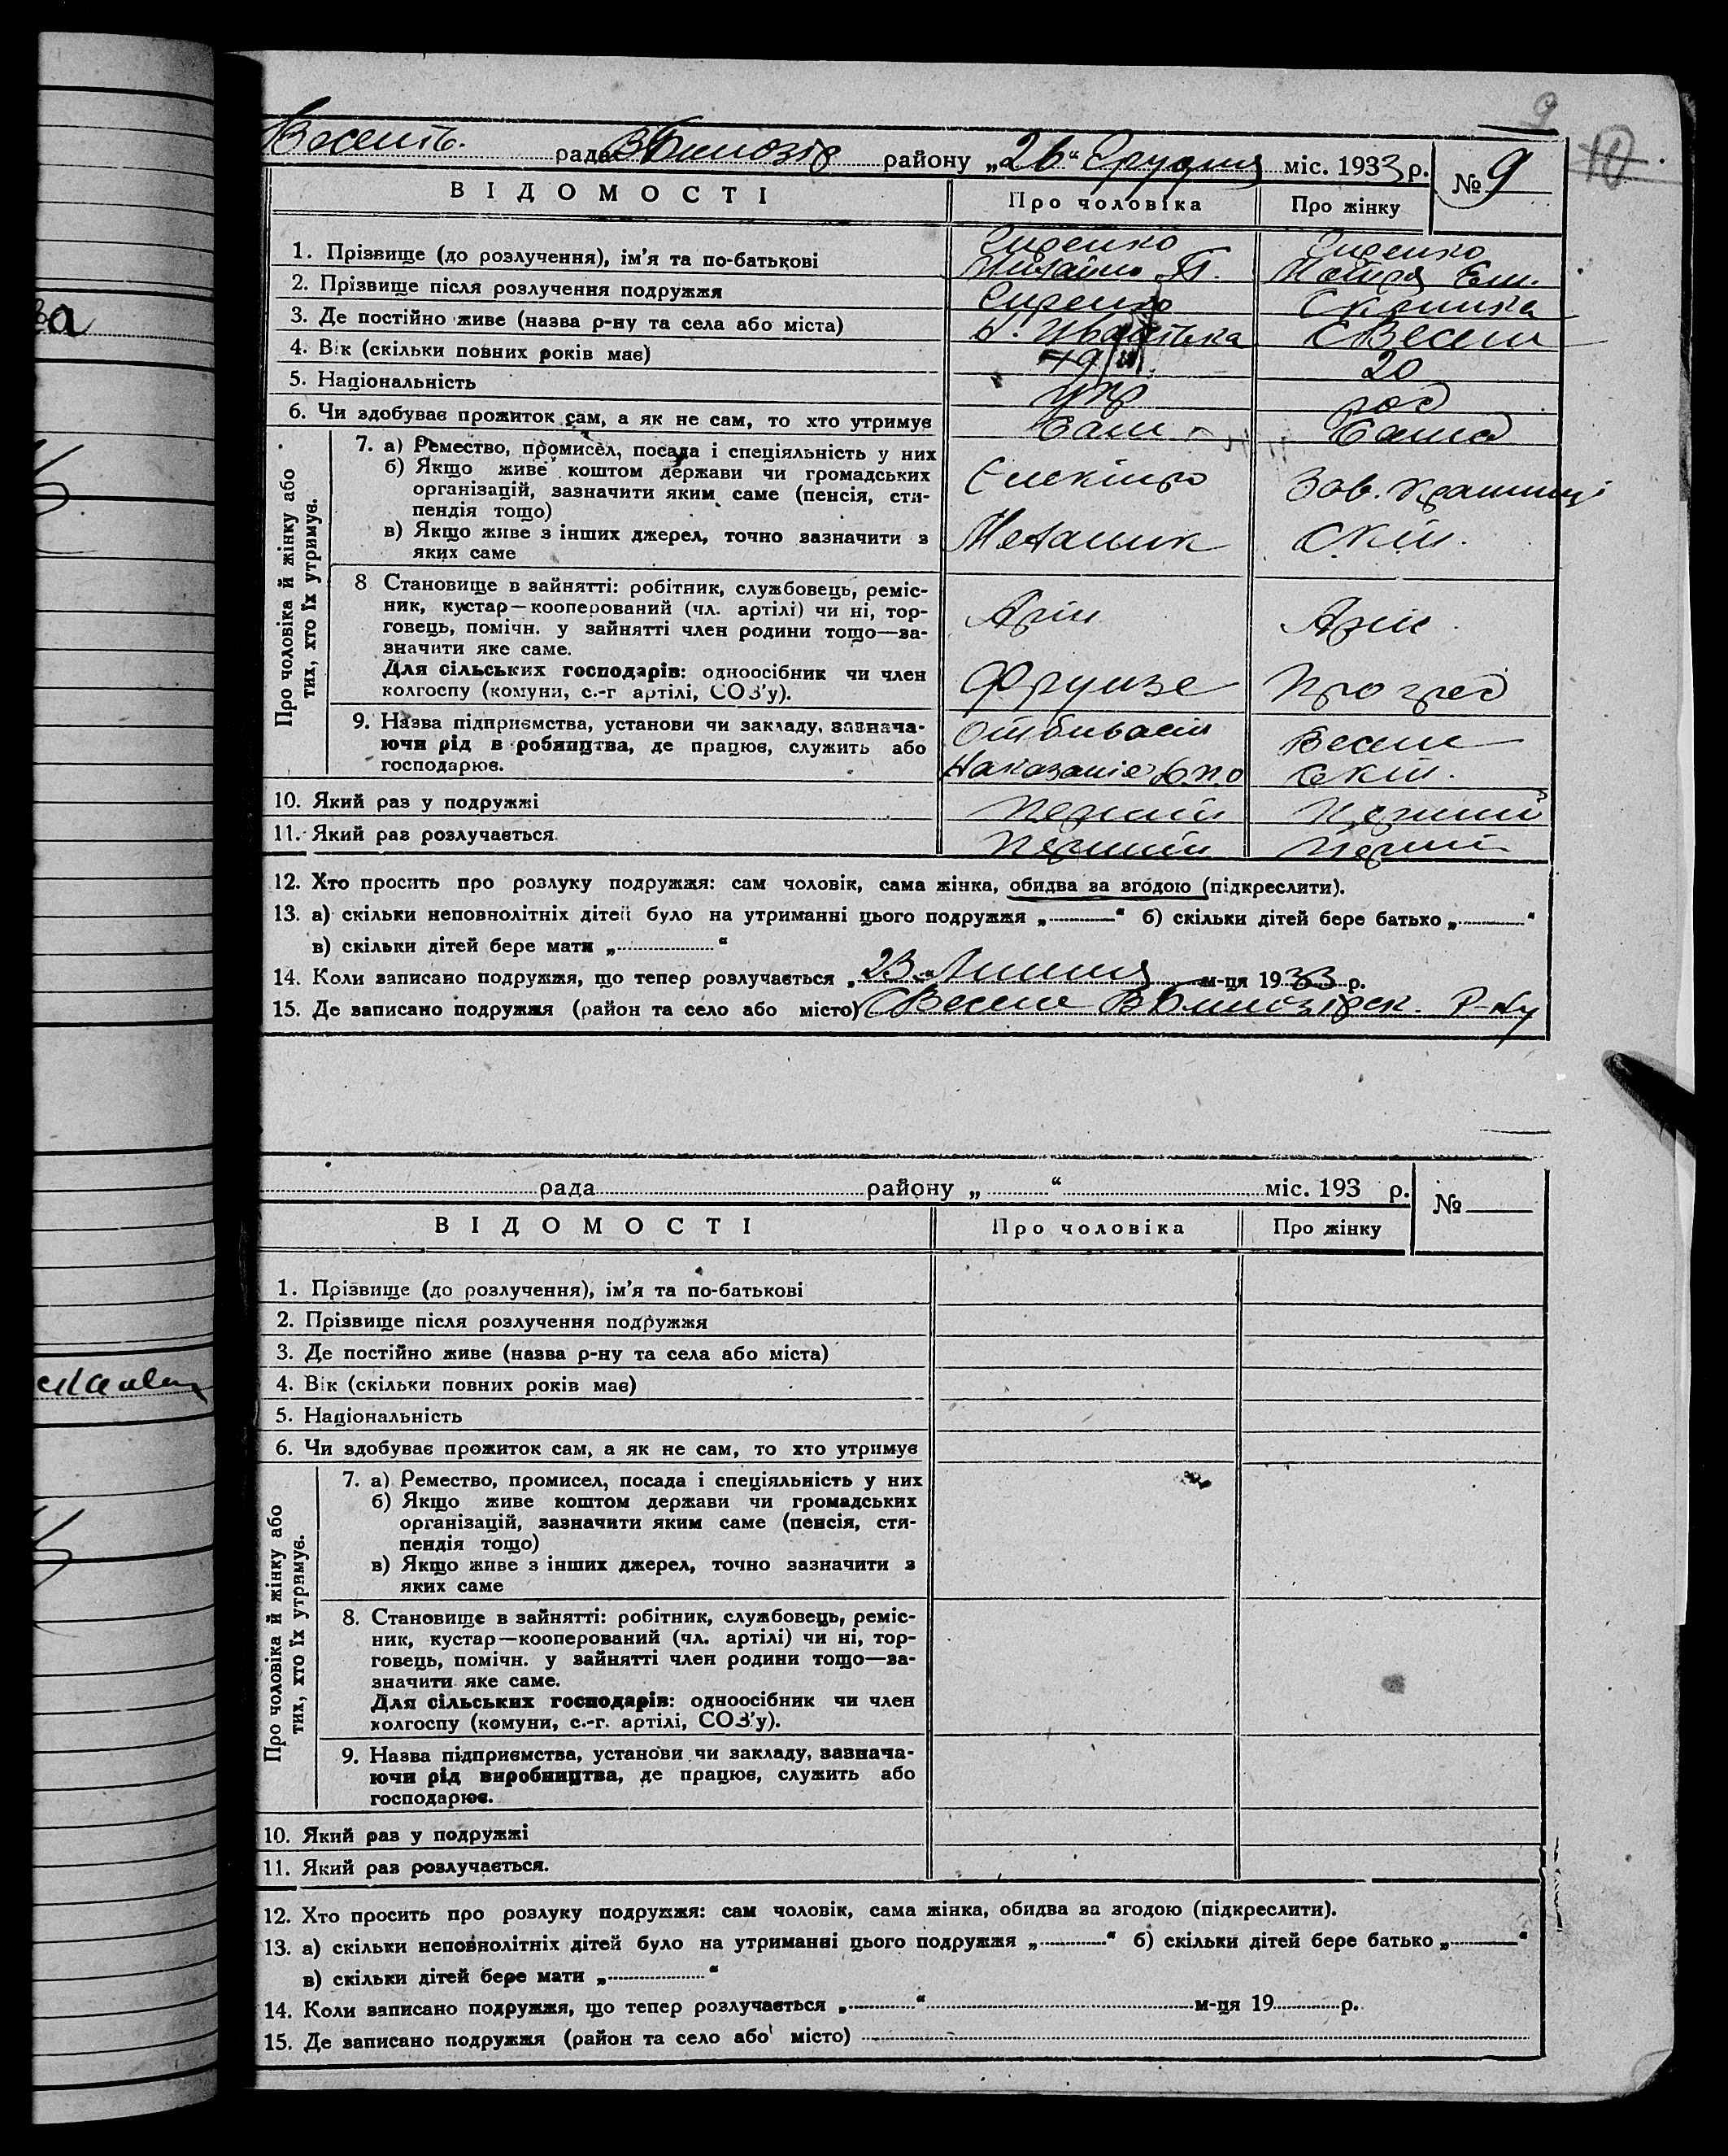 9
10
Веселя. рада В Билозір району „26“ Грудня міс. 1933 р.
№ 9
ВІДОМОСТІ
Про чоловіка
Про жінку
1. Прізвище (до розлучення), ім'я та по-батькові
Сиренко
Михайло П.
Сиренко
Мотря Ем.
2. Прізвище після розлучення подружжя
Сиренко
Скрипка
3. Де постійно живе (назва р-ну та села або міста)
с Весели
4. Вік (скільки повних років має)
20
5. Національність
укр
рос
6. Чи здобуває прожиток сам, а як не сам, то хто утримує
Сам
Сама
Про чоловіка й жінку або
тих, хто їх утримує.
7. а) Ремество, промисел, посада і спеціяльність у них
б) Якщо живе коштом держави чи громадських
організацій, зазначити яким саме (пенсія, сти-
пендія тощо)
в) Якщо живе з інших джерел, точно зазначити з
яких саме
Механик
Зав. крамниці
8 Становище в зайнятті: робітник, службовець, реміс-
ник, кустар—кооперований (чл. артілі) чи ні, тор-
говець, помічн. у зайнятті член родини тощо—за-
значити яке саме.
Для сільських господарів: одноосібник чи член
колгоспу (комуни, с.-г артілі, СОЗ'у).
Арт
Фрунзе
Арт
Прогрес
9. Назва підприємства, установи чи закладу, зазнача-
ючи рід в робництва, де працює, служить або
господарює.
Отбивает
Наказание
Весели
10. Який раз у подружжі
Перший
Перший
11. Який раз розлучається.
Перший
Перший
12. Хто просить про розлуку подружжя: сам чоловік, сама жінка, обидва за згодою (підкреслити).
13. а) скільки неповнолітніх дітей було на утриманні цього подружжя „ “ б) скільки дітей бере батько „ “
в) скільки дітей бере мати „ “
14. Коли записано подружжя, що тепер розлучається „23“ Липня м-ця 1933 р.
15. Де записано подружжя (район та село або місто) с Весели В Билозірск. Р-ну
рада району „ “ міс. 193 р.
№
ВІДОМОСТІ
Про чоловіка
Про жінку
1. Прізвище (до розлучення), ім'я та по-батькові
2. Прізвище після розлучення подружжя
3. Де постійно живе (назва р-ну та села або міста)
4. Вік (скільки повних років має)
5. Національність
6. Чи здобуває прожиток сам, а як не сам, то хто утримує
Про чоловіка й жінку або
тих, хто їх утримує.
7. а) Ремество, промисел, посада і спеціяльність у них
б) Якщо живе коштом держави чи громадських
організацій, зазначити яким саме (пенсія, сти-
пендія тощо)
в) Якщо живе з інших джерел, точно зазначити з
яких саме
8. Становище в зайнятті: робітник, службовець, реміс-
ник, кустар—кооперований (чл. артілі) чи ні, тор-
говець, помічн. у зайнятті член родини тощо—за-
значити яке саме.
Для сільських господарів: одноосібник чи член
колгоспу (комуни, с.-г. артілі, СОЗ'у).
9. Назва підприємства, установи чи закладу, зазнача-
ючи рід виробництва, де працює, служить або
господарює.
10. Який раз у подружжі
11. Який раз розлучається.
12. Хто просить про розлуку подружжя: сам чоловік, сама жінка, обидва за згодою (підкреслити).
13. а) скільки неповнолітніх дітей було на утриманні цього подружжя „ “ б) скільки дітей бере батько „ “
в) скільки дітей бере мати „ “
14. Коли записано подружжя, що тепер розлучається „ “ м-ця 19 р.
15. Де записано подружжя (район та село або місто)